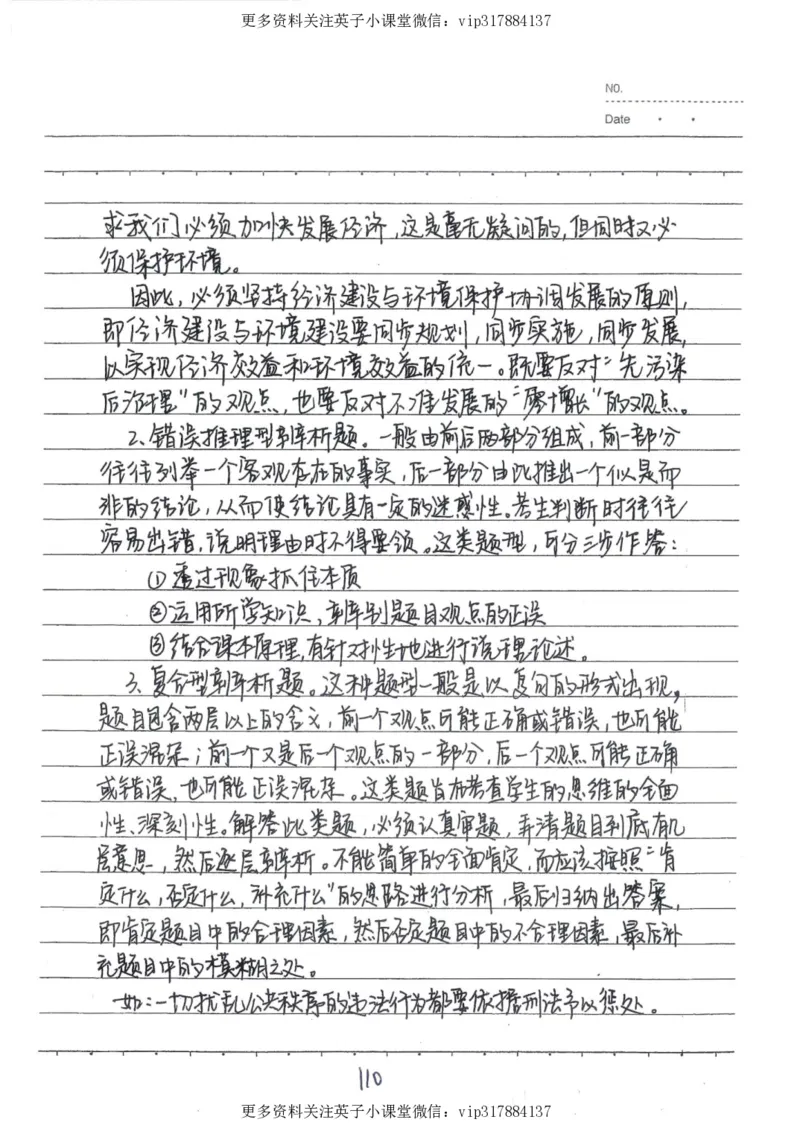 更多资料关注英子小课堂微信：vip317884137
NO.
Date
求我们必须加快发展经济，这是毫无疑问的，但同时又必
须保护环境。
因此，必须坚持经济建设与环境保护协调发展的原则，
即经济建设与环境建设要同步规划，同步实施，同步发展，
以实现经济效益和环境效益的统一。既要反对“先污染
后治理”的观点，也要反对不准发展的“零增长”的观点。
2、错误推理型辨析题。一般由前后两部分组成，前一部分
往往列举一个客观存在的事实，后一部分由此推出一个似是而
非的结论，从而使结论具有一定的迷惑性。考生判断时往往
容易出错，说明理由时不得要领。这类题型，可分三步作答：
①透过现象抓住本质
②运用所学知识，辨别题目观点的正误
③结合课本原理，有针对性地进行说理论述。
3、复合型辨析题。这种题型一般是以复句的形式出现，
题目包含两层以上的含义，前一个观点可能正确或错误，也可能
正误混杂；前一个又是后一个观点的一部分，后一个观点可能正确
或错误、也可能正误混杂。这类题旨在考查学生的思维的全面
性、深刻性。解答此类题，必须认真审题，弄清题目到底有几
层意思，然后逐层辨析。不能简单的全面肯定，而应该按照“肯
定什么，否定什么，补充什么”的思路进行分析，最后归纳出答案，
即肯定题目中的合理因素，然后否定题目中的不合理因素，最后补
充题目中的模糊之处。
如：一切扰乱公共秩序的违法行为都要依据刑法予以惩处。
110
更多资料关注英子小课堂微信：vip317884137